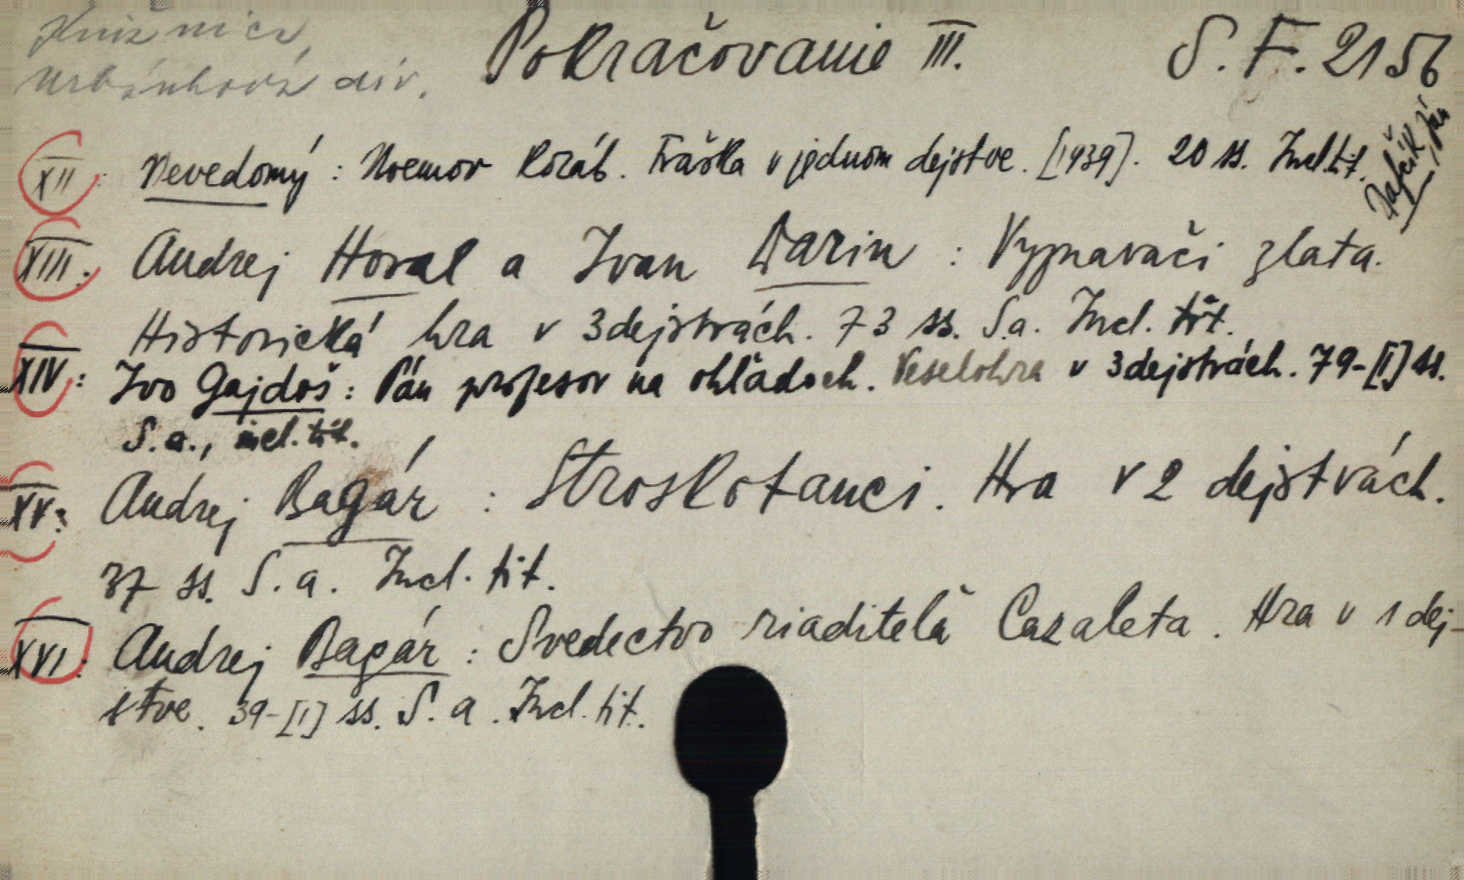 Knižnica
Urbánková div.
Pokračovanie III. S. F. 2156
XII: Nevedomý: Noemov Koráb. Fraška v jednom dejstve. [1939]. 20 ss. Incl. tit.
XIII. Andrej Horal a Ivan Darin: Vyznavači zlata.
Historická hra v 3 dejstvách. 73 ss. S. a. Incl. tit.
XIV: Ivo Gajdoš: Pán profesor na ohľadoch. Veselohra v 3 dejstvách. 79-[I] ss.
S. a., incl. tit.
XV: Andrej Bagár: Stroskotanci. Hra v 2 dejstvách.
37 ss. S. a. Incl. tit.
XVI: Andrej Bagár: Svedectvo riaditeľa Cazaleta. Hra v 1 dej-
stve. 39-[I] ss. S. a. Incl. tit.